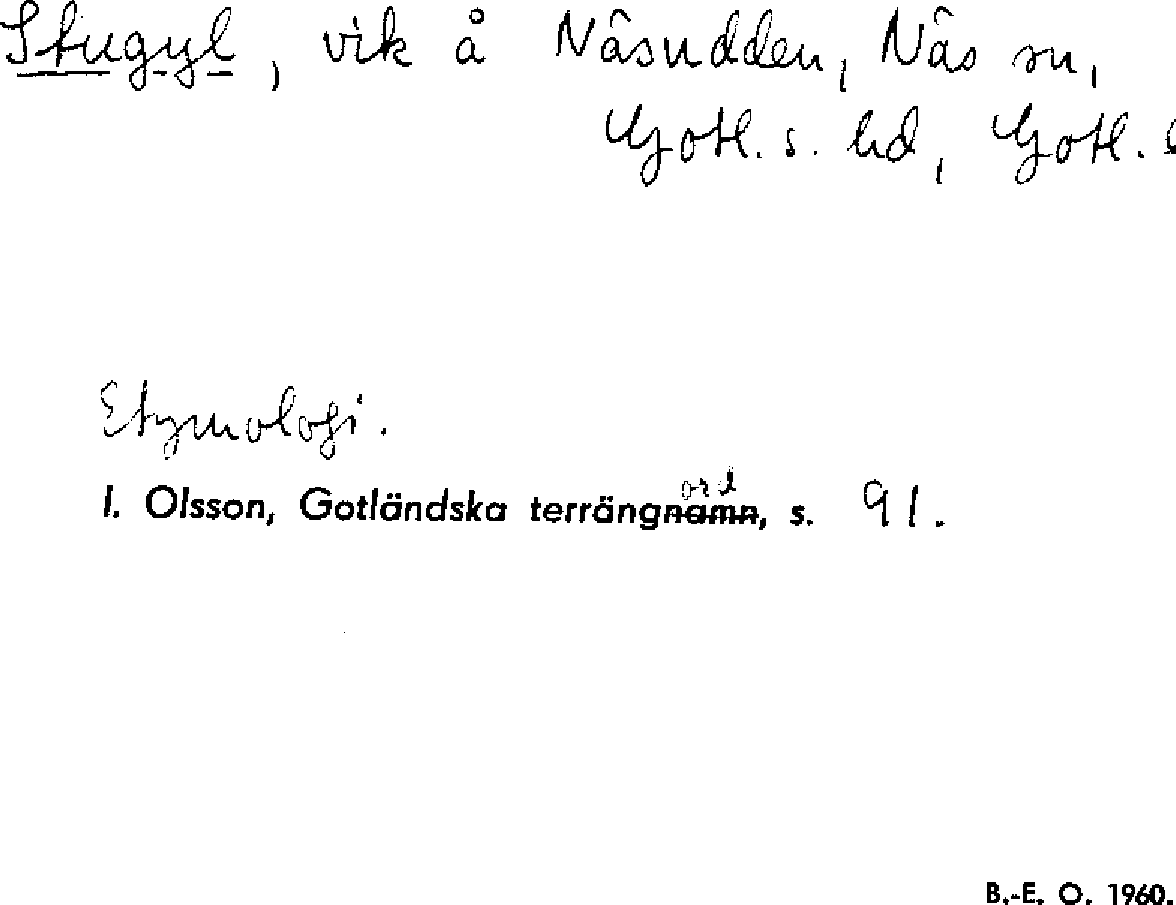 Stugyl, vik å Näsudden, Näs sn,
Gotl. s. hd, Gotl.
Etymologi.
I. Olsson, Gotländska terrängnamn, s. 91.
ord
B.-E. O. 1960.